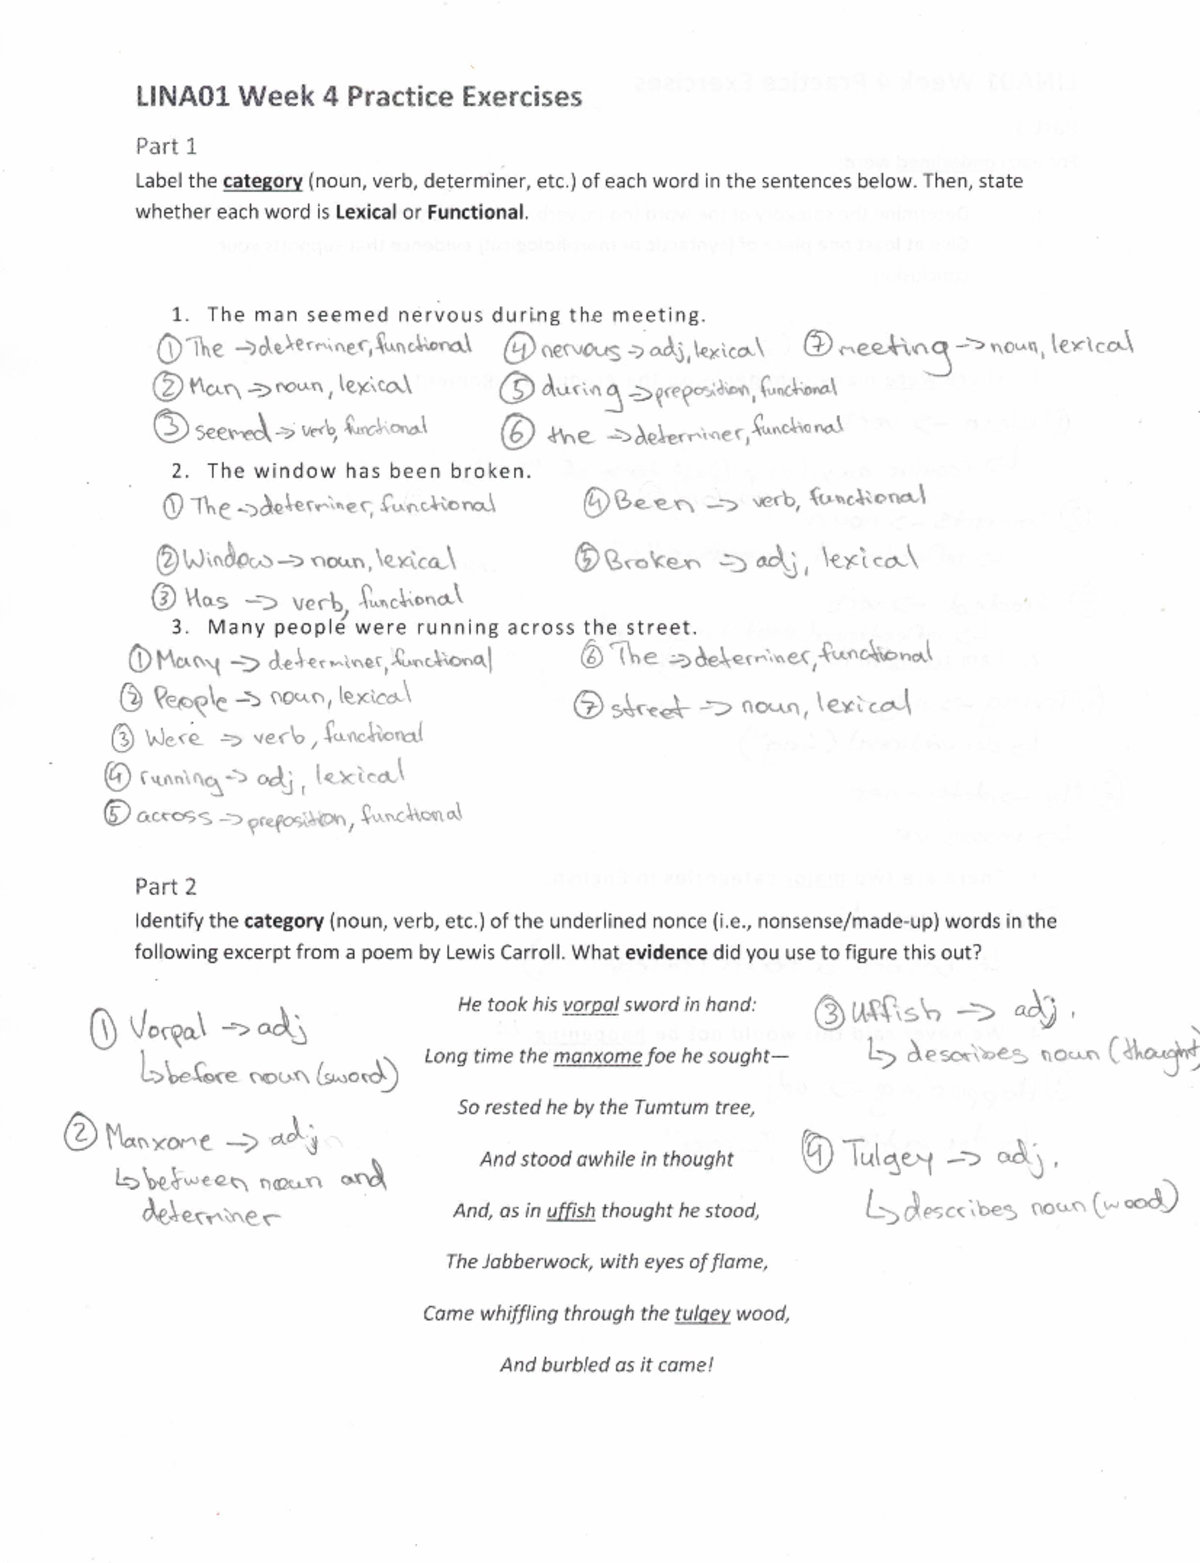 LINA01 Week 4 Practice Exercises
Part 1
Label the category (noun, verb, determiner, etc.) of each word in the sentences below. Then, state
whether each word is Lexical or Functional.
1. The man seemed nervous during the meeting.
① The → determiner, functional ④ nervous → adj, lexical ⑦ meeting → noun, lexical
② Man → noun, lexical ⑤ during → preposition, functional
③ seemed → verb, functional ⑥ the → determiner, functional
2. The window has been broken.
① The → determiner, functional ④ Been → verb, functional
② Window → noun, lexical ⑤ Broken → adj, lexical
③ Has → verb, functional
3. Many people were running across the street.
① Many → determiner, functional ⑥ The → determiner, functional
② People → noun, lexical ⑦ street → noun, lexical
③ Were → verb, functional
④ running → adj, lexical
⑤ across → preposition, functional
Part 2
Identify the category (noun, verb, etc.) of the underlined nonce (i.e., nonsense/made-up) words in the
following excerpt from a poem by Lewis Carroll. What evidence did you use to figure this out?
He took his vorpal sword in hand:
Long time the manxome foe he sought—
So rested he by the Tumtum tree,
And stood awhile in thought
And, as in uffish thought he stood,
The Jabberwock, with eyes of flame,
Came whiffling through the tulgey wood,
And burbled as it came!
① Vorpal → adj
↳ before noun (sword)
② Manxome → adj
↳ between noun and
determiner
③ Uffish → adj.
↳ describes noun (thought)
④ Tulgey → adj.
↳ describes noun (wood)